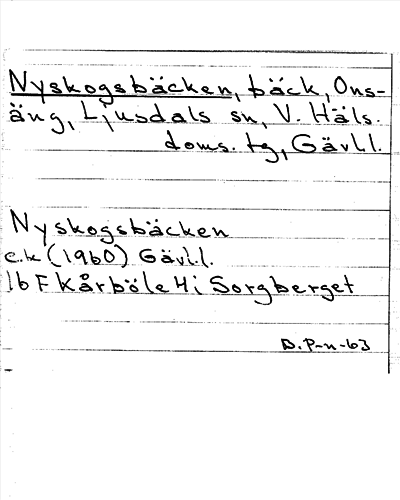 Nyskogsbäcken, bäck, Ons-
äng, Ljusdals sn, V. Häls.
doms. tg, Gävl.l.
Nyskogsbäcken
e.k (1960) Gävl.l.
16 F Kårböle 4 i Sorgberget
D.P-n-63